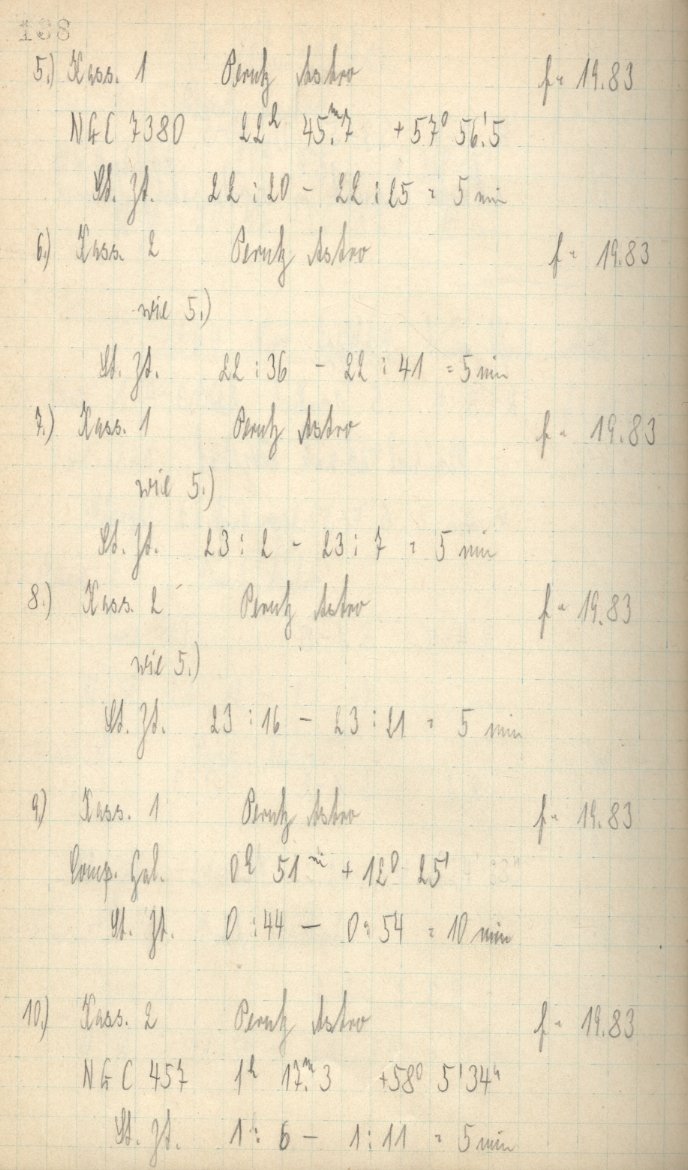 168
5.) Kass. 1 Perutz Astro f = 19.83
NGC 7380 22h 45.m7 +57° 56.'5
St. Zt. 22:20 - 22:25 = 5 min
6.) Kass. 2 Perutz Astro f = 19.83
wie 5.)
St. Zt. 22:36 - 22:41 = 5 min
7.) Kass. 1 Perutz Astro f = 19.83
wie 5.)
St. Zt. 23:2 - 23:7 = 5 min
8.) Kass. 2 Perutz Astro f = 19.83
wie 5.)
St. Zt. 23:16 - 23:21 = 5 min
9.) Kass. 1 Perutz Astro f = 19.83
Comp. Gal. 0h 51m + 12° 25'
St. Zt. 0:44 - 0:54 = 10 min
10.) Kass. 2 Perutz Astro f = 19.83
NGC 457 1h 17.m3 +58° 5'34"
St. Zt. 1:6 - 1:11 = 5 min